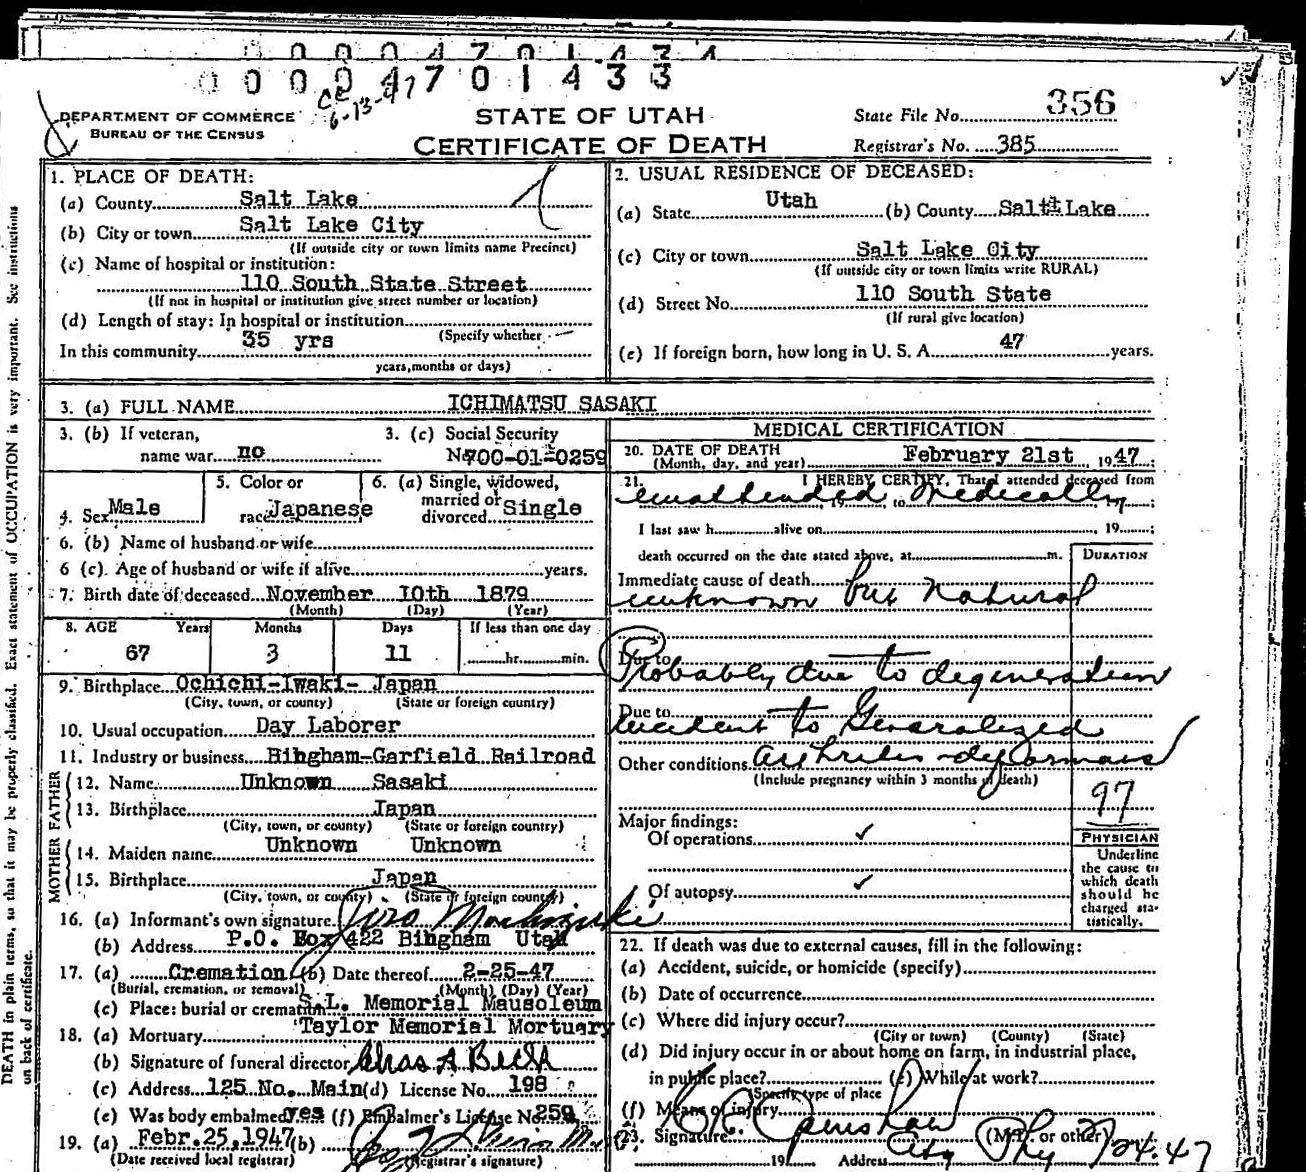 0 0 0 4 7 0 1 4 3 4
0 0 0 4 7 0 1 4 3 3
6-13-47
DEPARTMENT OF COMMERCE
BUREAU OF THE CENSUS
STATE OF UTAH
CERTIFICATE OF DEATH
State File No. 356
Registrar's No. 385
DEATH in plain terms, so that it may be properly classified. Exact statement of OCCUPATION is very important. See instructions
on back of certificate.
1. PLACE OF DEATH:
(a) County Salt Lake
(b) City or town Salt Lake City
(If outside city or town limits name Precinct)
(c) Name of hospital or institution:
110 South State Street
(If not in hospital or institution give street number or location)
(d) Length of stay: In hospital or institution
(Specify whether
In this community 35 yrs
years, months or days)
2. USUAL RESIDENCE OF DECEASED:
(a) State Utah (b) County Salt Lake
(c) City or town Salt Lake City
(If outside city or town limits write RURAL)
(d) Street No. 110 South State
(If rural give location)
(e) If foreign born, how long in U. S. A. 47 years.
3. (a) FULL NAME ICHIMATSU SASAKI
3. (b) If veteran,
name war no
3. (c) Social Security
No. 700-01-0259
4. Sex Male
5. Color or
race Japanese
6. (a) Single, widowed,
married or
divorced Single
6. (b) Name of husband or wife
6 (c). Age of husband or wife if alive years.
7. Birth date of deceased November 10th 1879
(Month) (Day) (Year)
8. AGE Years Months Days If less than one day
67 3 11 hr. min.
9. Birthplace Ochichi-Iwaki- Japan
(City, town, or county) (State or foreign country)
10. Usual occupation Day Laborer
11. Industry or business Bingham-Garfield Railroad
FATHER
12. Name Unknown Sasaki
13. Birthplace Japan
(City, town, or county) (State or foreign country)
MOTHER
14. Maiden name Unknown Unknown
15. Birthplace Japan
(City, town, or county) (State or foreign country)
16. (a) Informant's own signature
(b) Address P.O. Box 422 Bingham Utah
17. (a) Cremation (b) Date thereof 2-25-47
(Burial, cremation, or removal) (Month) (Day) (Year)
(c) Place: burial or cremation S.L. Memorial Mausoleum
18. (a) Mortuary Taylor Memorial Mortuary
(b) Signature of funeral director
(c) Address 125 No. Main (d) License No. 198
(e) Was body embalmed yes (f) Embalmer's License No. 259
19. (a) Febr. 25, 1947 (b)
(Date received local registrar) (Registrar's signature)
MEDICAL CERTIFICATION
20. DATE OF DEATH
(Month, day, and year) February 21st, 1947;
21. I HEREBY CERTIFY, That I attended deceased from
unattended Medically
I last saw h alive on , 19 ;
death occurred on the date stated above, at m.
DURATION
Immediate cause of death
unknown but Natural
Due to
Probably due to degeneration
Due to
incident to Generalized
Other conditions arthritis deformans
(Include pregnancy within 3 months of death)
97
Major findings:
Of operations ✓
Of autopsy ✓
PHYSICIAN
Underline
the cause to
which death
should be
charged sta-
tistically.
22. If death was due to external causes, fill in the following:
(a) Accident, suicide, or homicide (specify)
(b) Date of occurrence
(c) Where did injury occur?
(City or town) (County) (State)
(d) Did injury occur in or about home on farm, in industrial place,
in public place? (e) While at work?
(Specify type of place
(f) Means of injury
23. Signature (M.D. or other)
19 Address City Phy 2/24.47